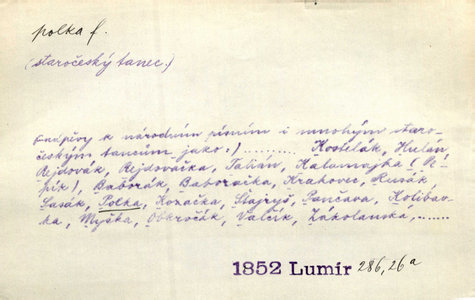 polka f.
(staročeský tanec.)
(nápěvy k národním písním i mnohým staro-
českým tancům jako:) ........ Kostelák, Hulán
Rejdovák, Rejdovačka, Talián, Kalamajka (Ně-
pik), Baborák, Baboračka, Krahovec, Rusák,
Sasák, Polka, Kozačka, Štajryš, Tančava, Kolibav-
ka, Myška, Obkročák, Valčík, Zákolanska, .......
1852 Lumír 286,26a